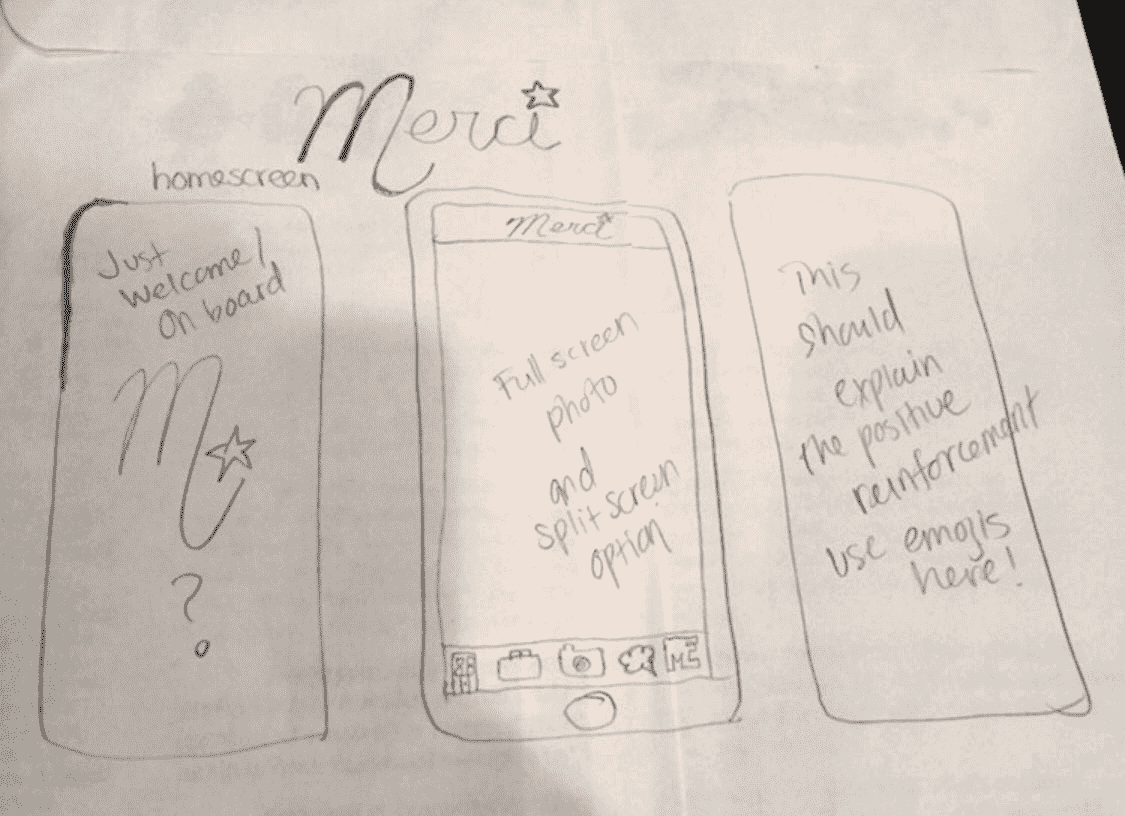 Merci
homescreen
Just
Welcome!
On board
M
?
Merci
Full screen
photo
and
split screen
option
ME
This
should
explain
the positive
reinforcement
use emojis
here!